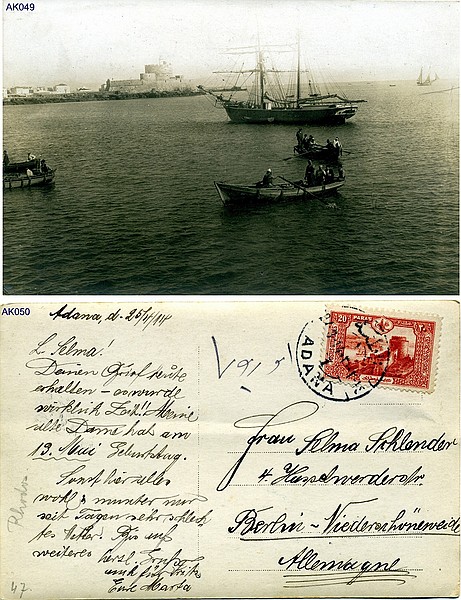 AK049
AK050
Adana, d. 25/4/14
L. Selma!
Deinen Brief heute
erhalten – es wurde
wirklich Zeit! Meine
alte Dame hat am
19. Mai Geburtstag.
Sonst hier alles
wohl & munter nur
seit Tagen sehr schlech
tes Wetter. Bis auf
weiteres herzl.
Eure Marta
Rhodos
47.
20 PARAS
ADANA
Frau Selma Schlender
4. Hasselwerderstr.
Berlin – Niederschöneweide
Allemagne